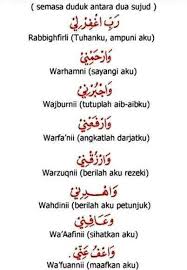 ( semasa duduk antara dua sujud )
رَبِّ اغْفِرْلِيْ
Rabbighfirli (Tuhanku, ampuni aku)
وَارْحَمْنِيْ
Warhamni (sayangi aku)
وَاجْبُرْنِيْ
Wajburnii (tutuplah aib-aibku)
وَارْفَعْنِيْ
Warfa'nii (angkatlah darjatku)
وَارْزُقْنِيْ
Warzuqnii (berilah aku rezeki)
وَاهْدِنِيْ
Wahdinii (berilah aku petunjuk)
وَعَافِنِيْ
Wa'Aafinii (sihatkan aku)
وَاعْفُ عَنِّيْ
Wa'fuannii (maafkan aku)